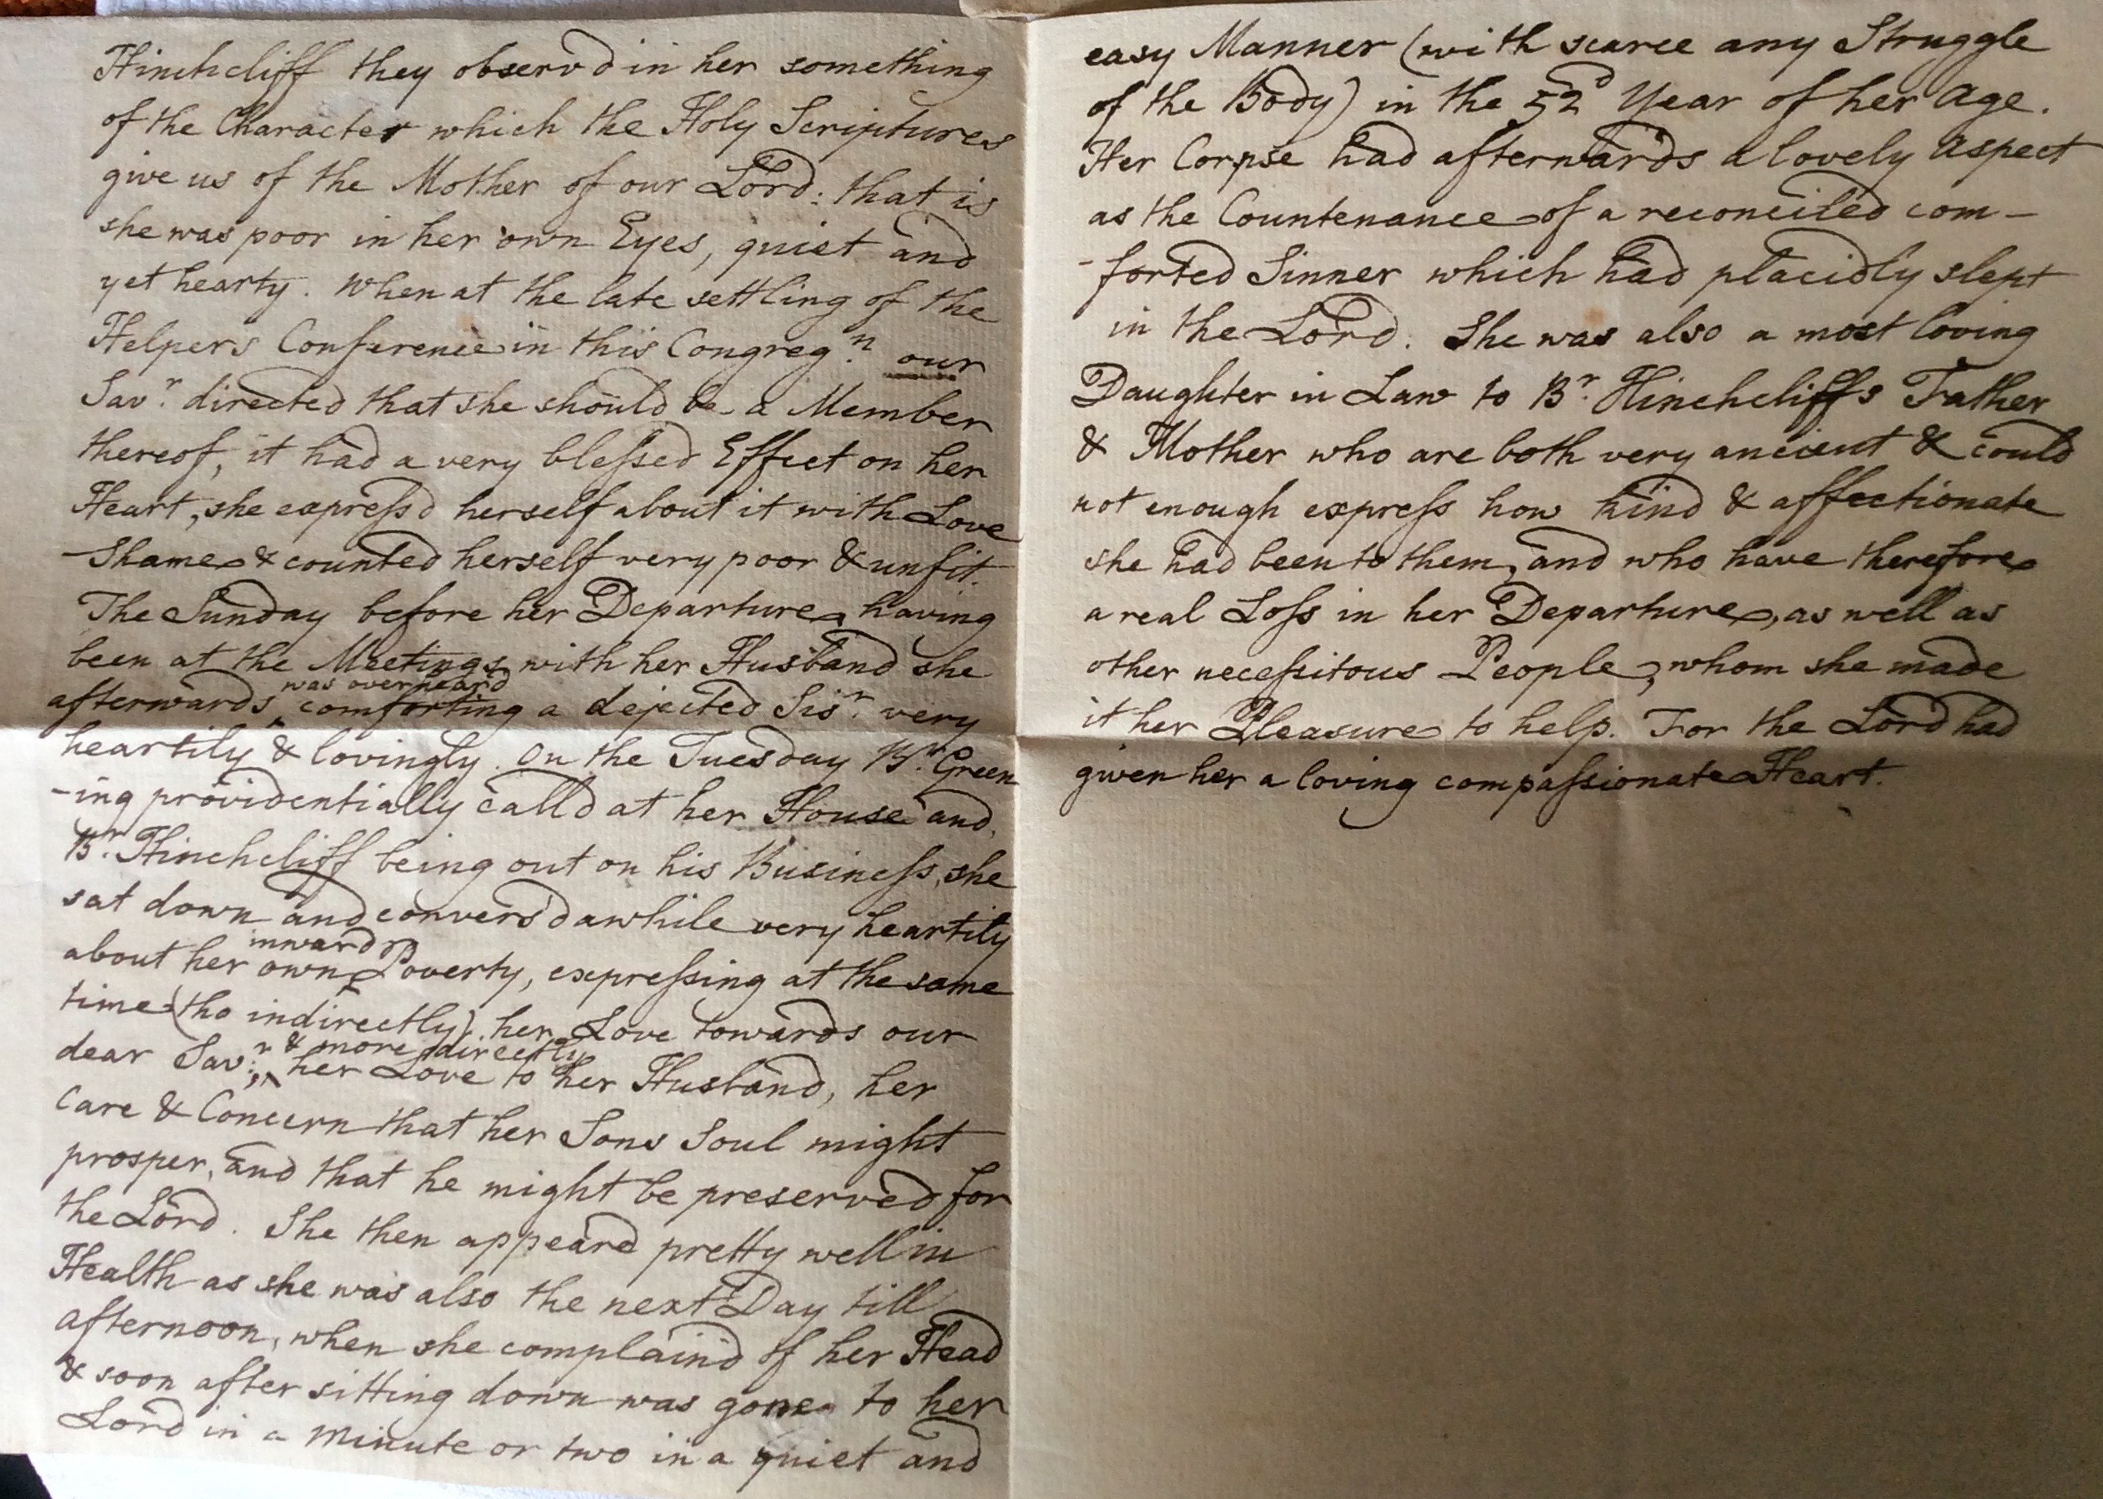 Hinchcliff they observ'd in her something
of the Character which the Holy Scriptures
give us of the Mother of our Lord: that is
she was poor in her own Eyes, quiet and
yet hearty. When at the late settling of the
Helpers Conference in this Congreg.n our
Sav.r directed that she should be a Member
thereof, it had a very blessed Effect on her
Heart, she express'd herself about it with Love
Shame & counted herself very poor & unfit.
The Sunday before her Departure, having
been at the Meetings with her Husband she
was overheard
afterwards comforting a dejected Sis.r very
heartily & lovingly. On the Tuesday Br. Green
-ing providentially call'd at her House and
Br. Hinchcliff being out on his Business, she
sat down and convers'd awhile very heartily
inward
about her own Poverty, expressing at the same
time (tho indirectly) her Love towards our
& more directly
dear Sav.r, her Love to her Husband, her
Care & Concern that her Sons Soul might
prosper, and that he might be preserved for
the Lord. She then appeard pretty well in
Health as she was also the next Day till
afternoon, when she complain'd of her Head
& soon after sitting down was gone to her
Lord in a Minute or two in a quiet and
easy Manner (with scarce any Struggle
of the Body) in the 52d Year of her Age.
Her Corpse had afterwards a lovely Aspect
as the Countenance of a reconciled com-
-forted Sinner which had placidly slept
in the Lord. She was also a most loving
Daughter in Law to Br. Hinchcliffs Father
& Mother who are both very ancient & could
not enough express how kind & affectionate
she had been to them, and who have therefore
a real Loss in her Departure, as well as
other necessitous People, whom she made
it her Pleasure to help. For the Lord had
given her a loving compassionate Heart.